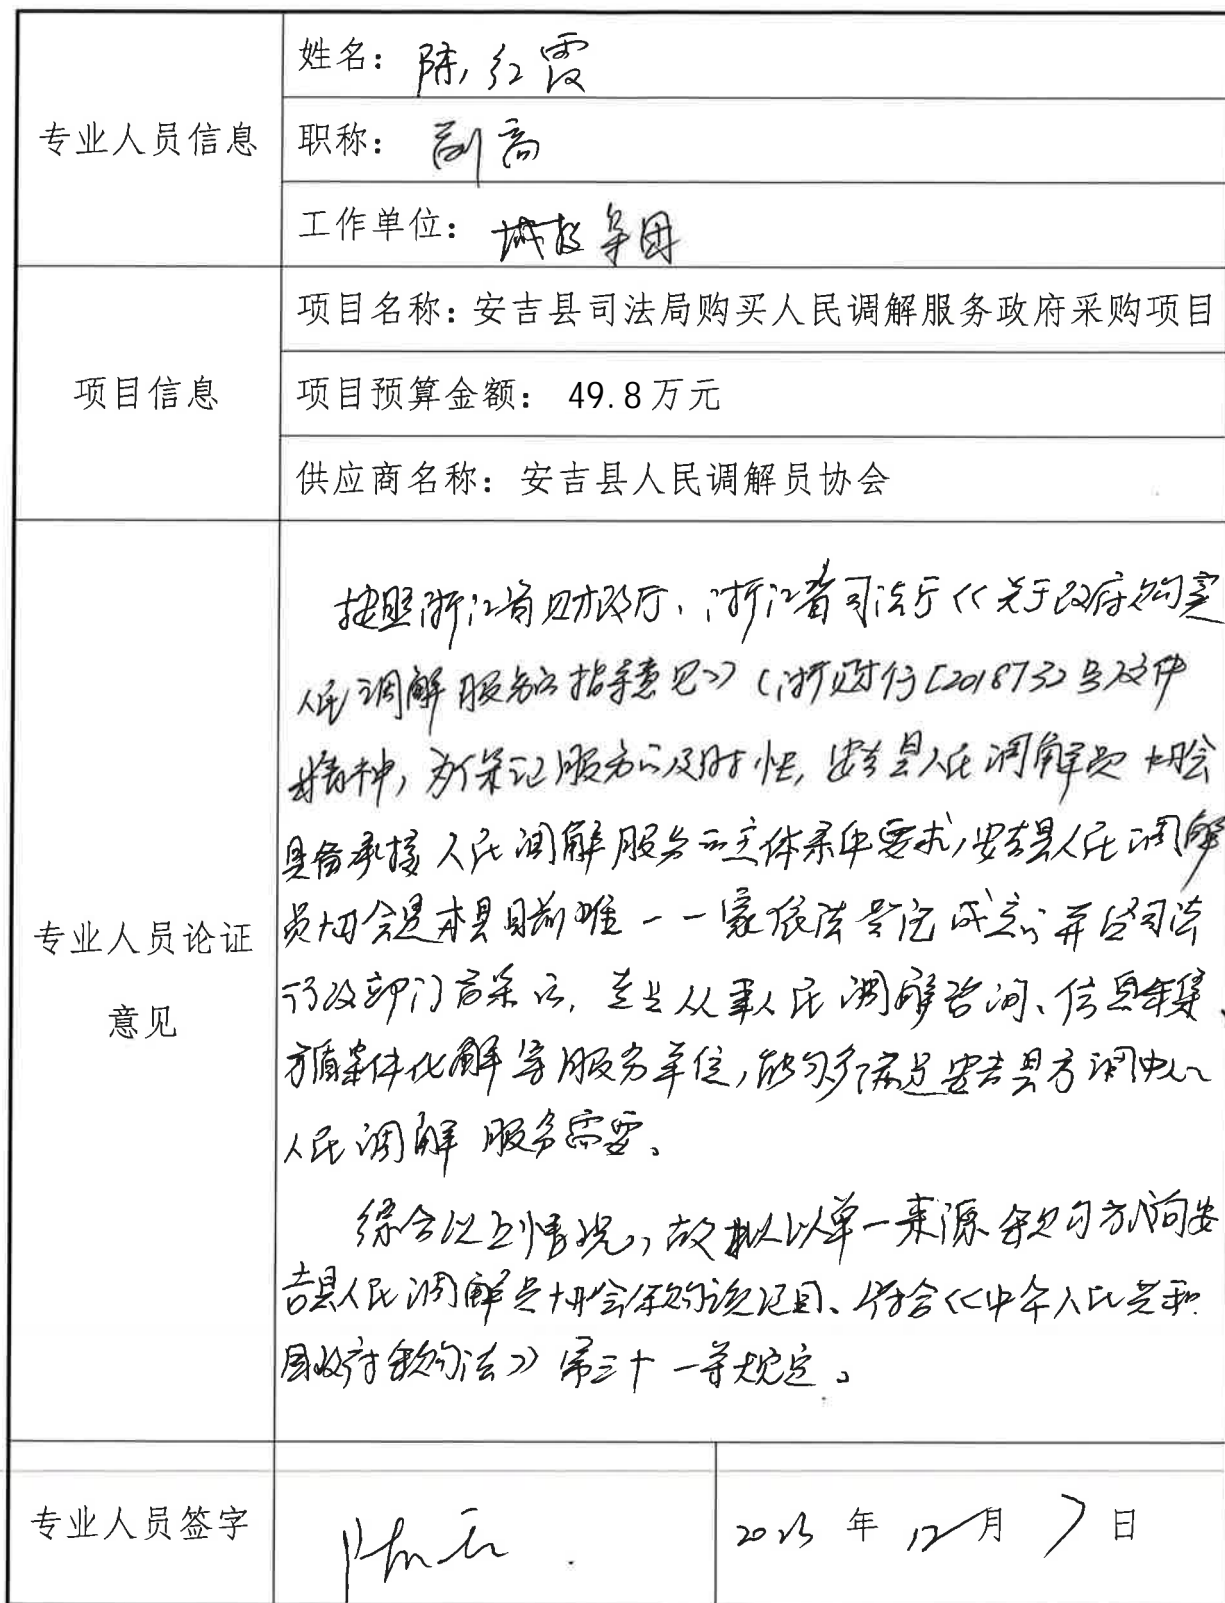 专业人员信息
姓名：陈红霞
职称：副高
工作单位：城投集团
项目信息
项目名称：安吉县司法局购买人民调解服务政府采购项目
项目预算金额： 49.8万元
供应商名称：安吉县人民调解员协会
专业人员论证
意见
按照浙江省财政厅、浙江省司法厅《关于政府购买
人民调解服务的指导意见》（浙财行[2018]32号文件
精神，为保证服务的及时性，安吉县人民调解员协会
具备承接人民调解服务的主体条件要求，安吉县人民调解
员协会是本县目前唯一一家依法登记成立的并经司法
行政部门备案的，专业从事人民调解咨询、信息采集、
矛盾案件化解等服务单位，能够满足安吉县矛调中心
人民调解服务需要。
综合以上情况，故拟以单一来源采购方式向安
吉县人民调解员协会采购该项目、符合《中华人民共和
国政府采购法》第三十一条规定。
专业人员签字
陈红霞
年 12月 7日